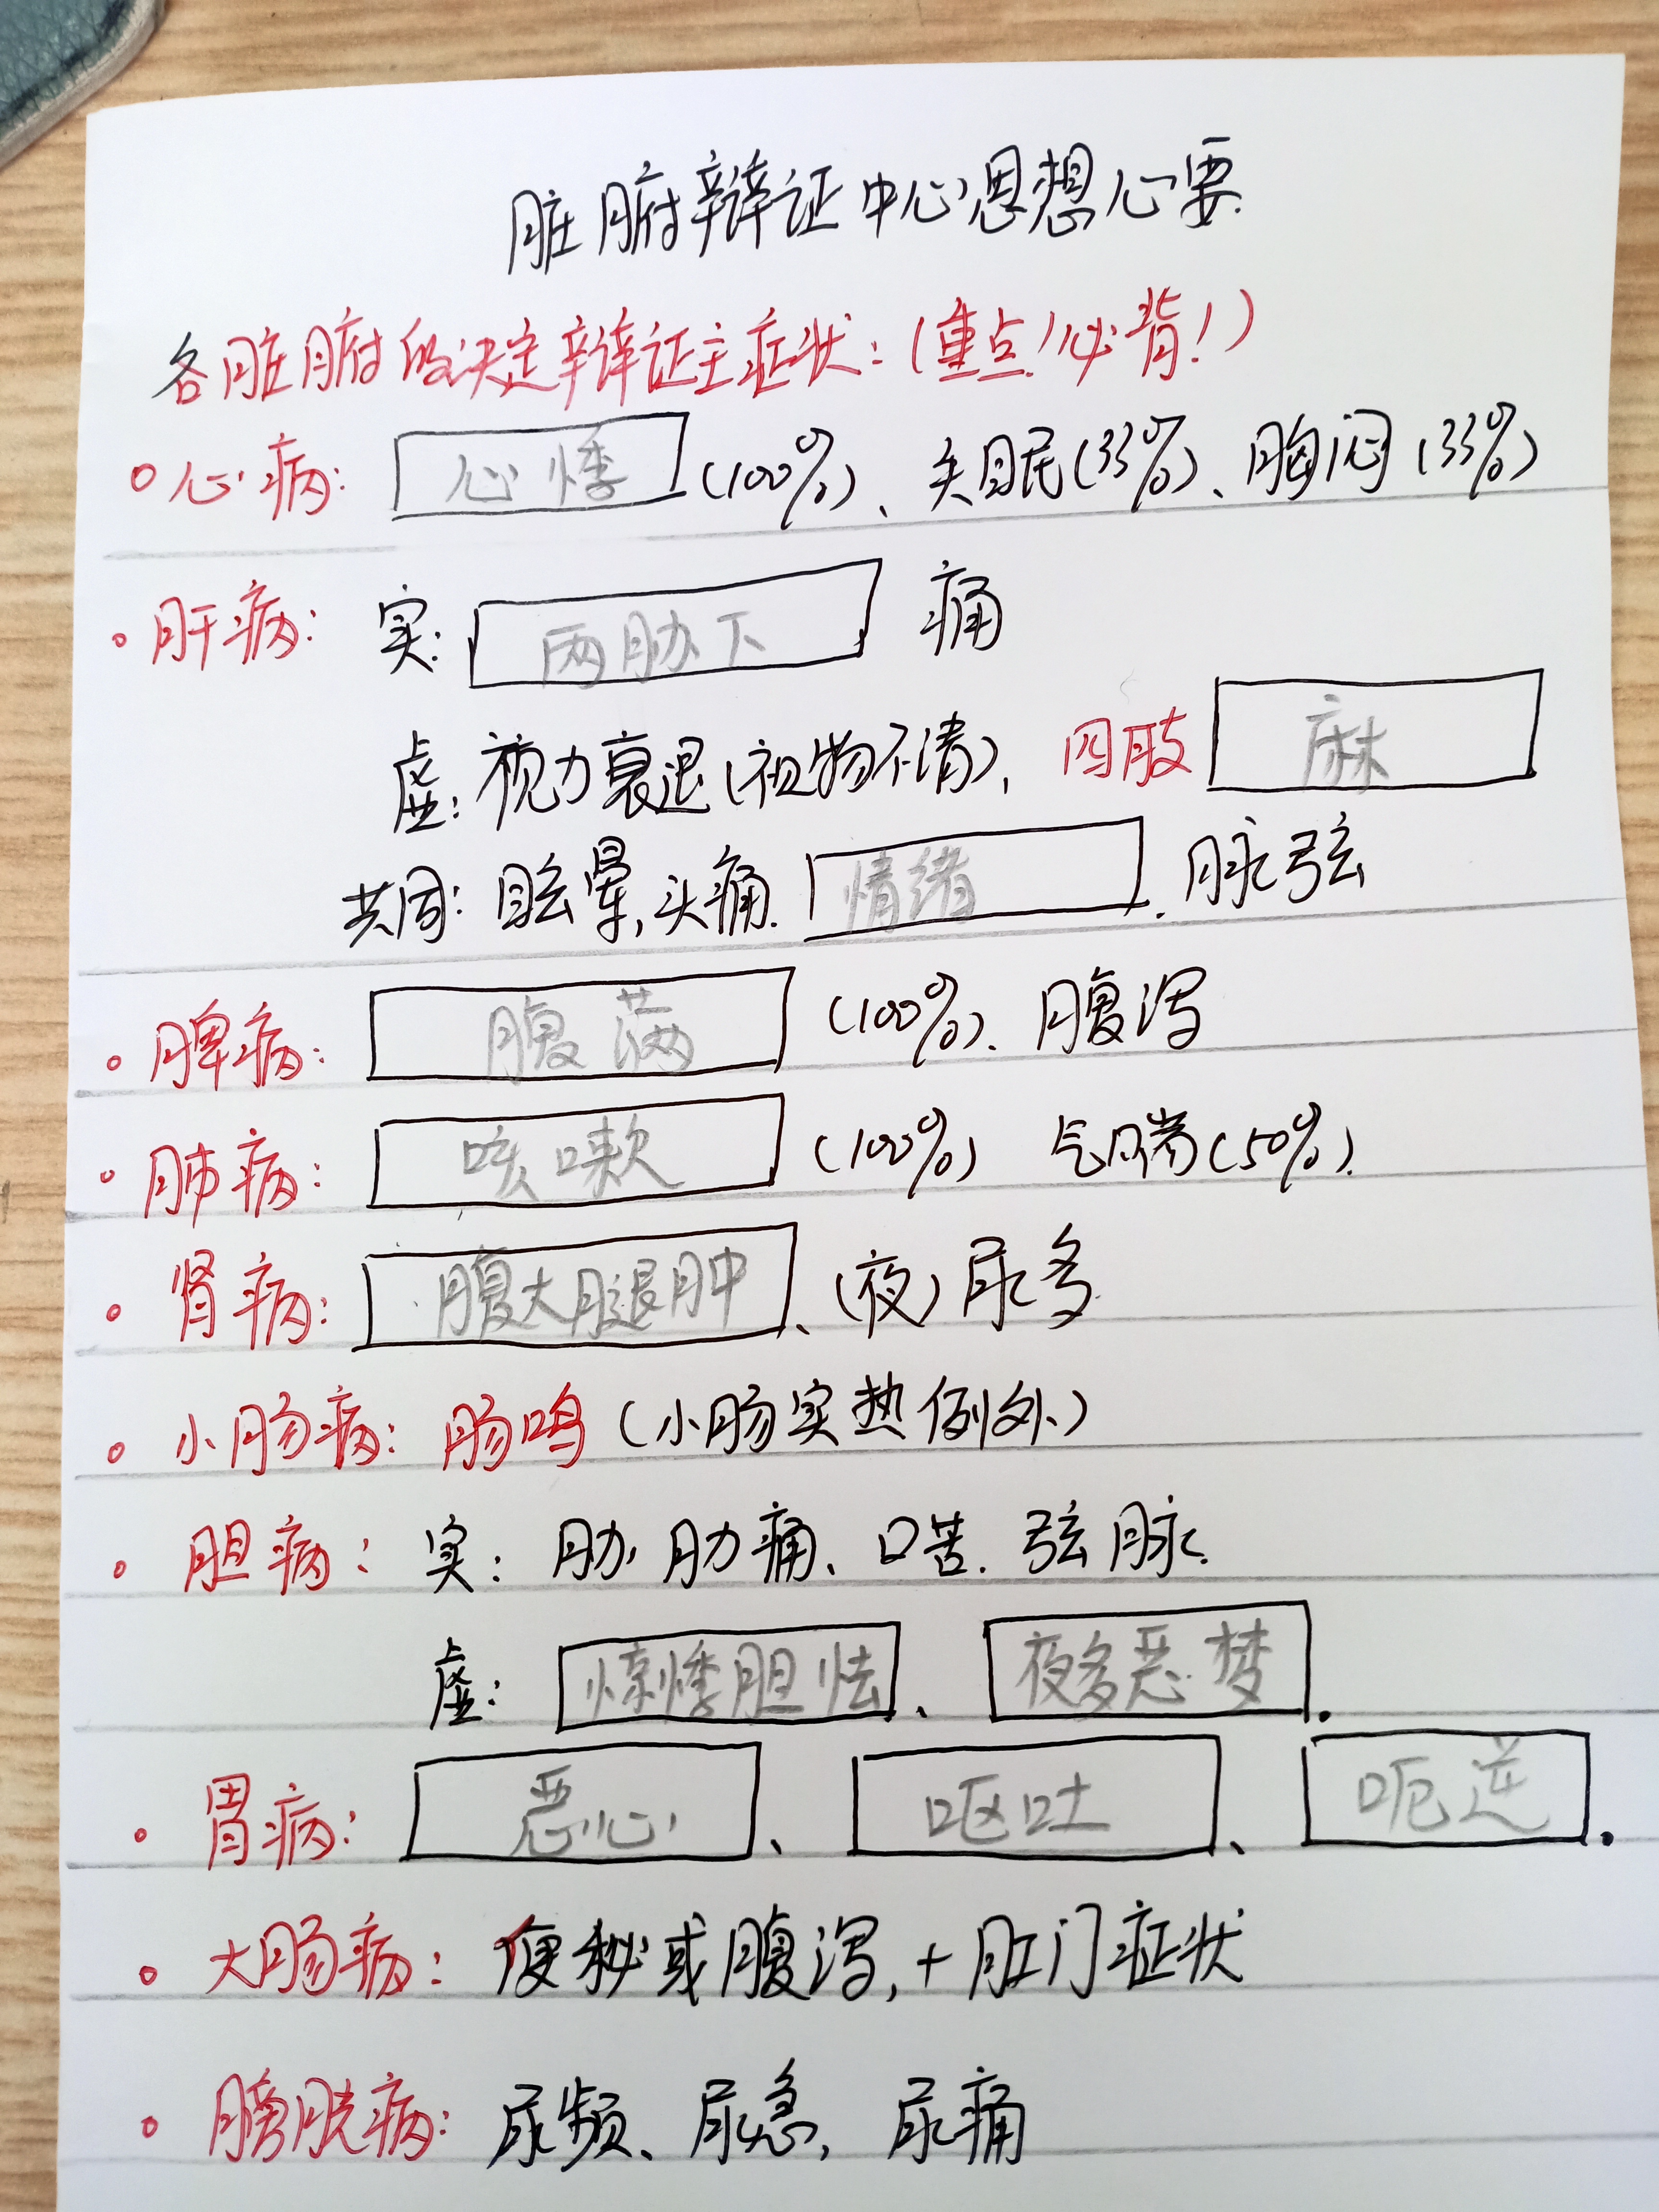 脏腑辩证中心思想心要.
各脏腑的决定辩证主症状:(重点!必背!)
心病: 心悸 (100%)、失眠(33%)、胸闷(33%)
肝病: 实: 两胁下 痛
虚: 视力衰退(视物不清), 四肢 麻
共同: 眩晕,头痛. 情绪. 脉弦
脾病: 腹满 (100%)、腹泻
肺病: 咳嗽 (100%) 气喘(50%).
肾病: 腹大腿肿、(夜)尿多.
小肠病: 肠鸣 (小肠实热例外)
胆病: 实: 胁肋痛、口苦. 弦脉.
虚: 惊悸胆怯、夜多恶梦.
胃病: 恶心、呕吐、呃逆.
大肠病: 便秘或腹泻,+肛门症状
膀胱病: 尿频、尿急, 尿痛